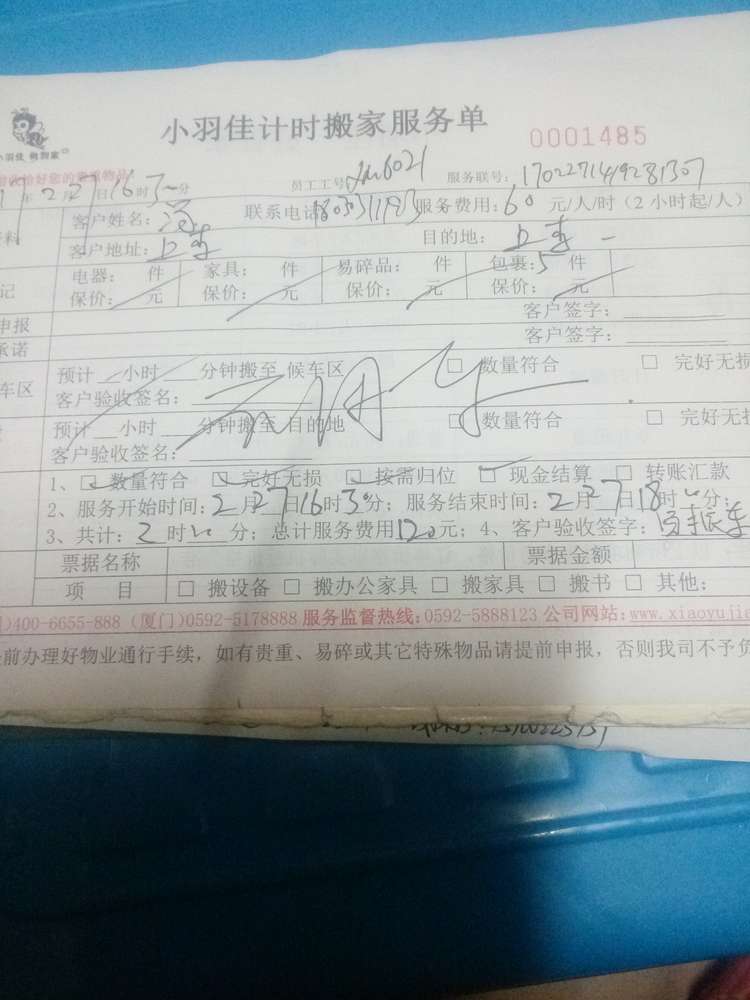 小羽佳计时搬家服务单
0001485
小羽佳 搬到家
收拾好您的贵重物品
年2月27日16时30分 员工工号 服务联号:
客户姓名: 联系电话 服务费用:60 元/人/时(2小时起/人)
客户地址: 目的地:
电器: 件 家具: 件 易碎品: 件 包裹:5 件
保价: 元 保价: 元 保价: 元 保价: 元
申报 客户签字:
承诺 客户签字:
车区 预计 小时 分钟搬至 候车区 □ 数量符合 □ 完好无损
客户验收签名:
预计 小时 分钟搬至 目的地 □ 数量符合 □ 完好无
客户验收签名:
1、☑ 数量符合 ☑ 完好无损 ☑ 按需归位 ☑ 现金结算 □ 转账汇款
2、服务开始时间:2月27日16时30分;服务结束时间:2月27日18时 分;
3、共计:2时 分;总计服务费用120元;4、客户验收签字:
票据名称 票据金额
项 目 □ 搬设备 □ 搬办公家具 □ 搬家具 □ 搬书 □ 其他:
)400-6655-888 (厦门)0592-5178888 服务监督热线:0592-5888123 公司网站:www.xiaoyujia
前办理好物业通行手续,如有贵重、易碎或其它特殊物品请提前申报,否则我司不予负